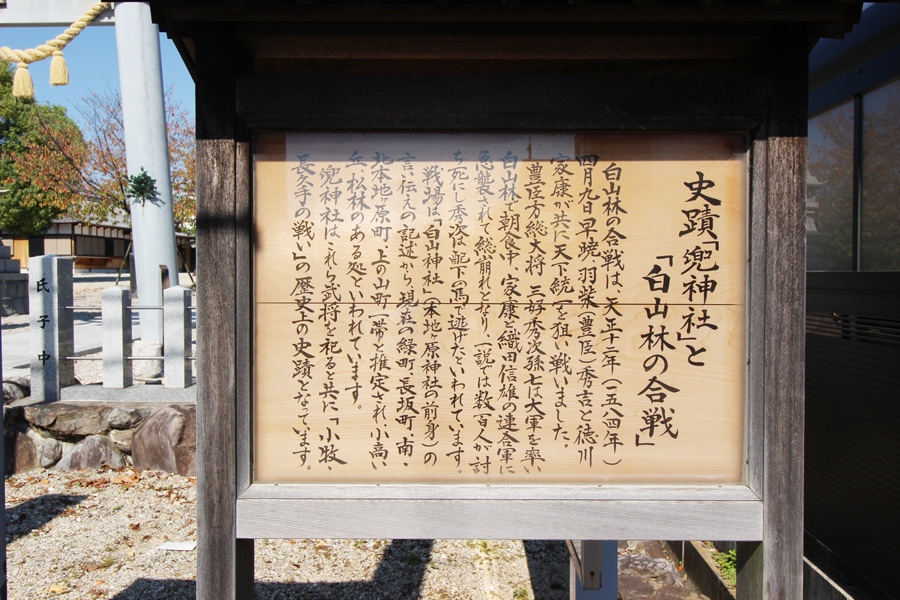 史蹟「兜神社」と
「白山林の合戦」
白山林の合戦は、天正十二年(一五八四年)
四月九日早暁、羽柴(豊臣)秀吉と徳川
家康が共に天下統一を狙い戦いました。
豊臣方総大将 三好秀次孫七は大軍を率い
白山林で朝食中 家康と織田信雄の連合軍に
急襲されて総崩れとなり、一説では数百人が討
ち死にし秀次は配下の馬で逃げたといわれています。
戦場は「白山神社」(本地ヶ原神社の前身)の
言い伝えの記述から、現在の緑町・長坂町、南・
北本地ヶ原町、上の山町一帯と推定され、小高い
丘、松林のある処といわれています。
兜神社は、これら武将を祀ると共に「小牧・
長久手の戦い」の歴史上の史蹟となっています。
氏子中